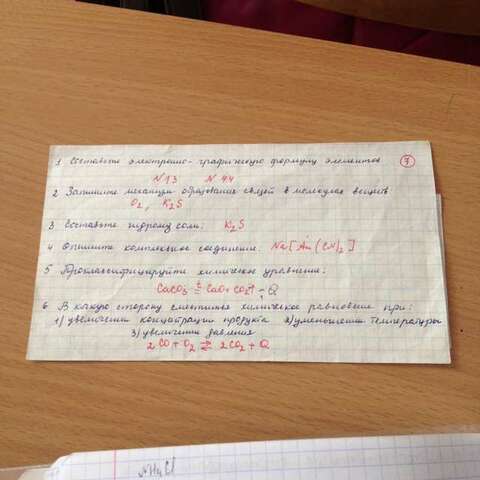 1 Составьте электронно-графическую формулу элементов
7
N13 N44
2 Запишите механизм образования связей в молекулах веществ
O2, K2S
3 Составьте гидролиз соли: K2S
4 Опишите комплексное соединение: Na[Au(CN)2]
5 Проклассифицируйте химическое уравнение:
CaCO3 ⇄ CaO + CO2↑ - Q
6 В какую сторону сместится химическое равновесие при:
1) увеличении концентрации продукта 2) уменьшении температуры
3) увеличении давления
2CO + O2 ⇄ 2CO2 + Q
NH4Cl